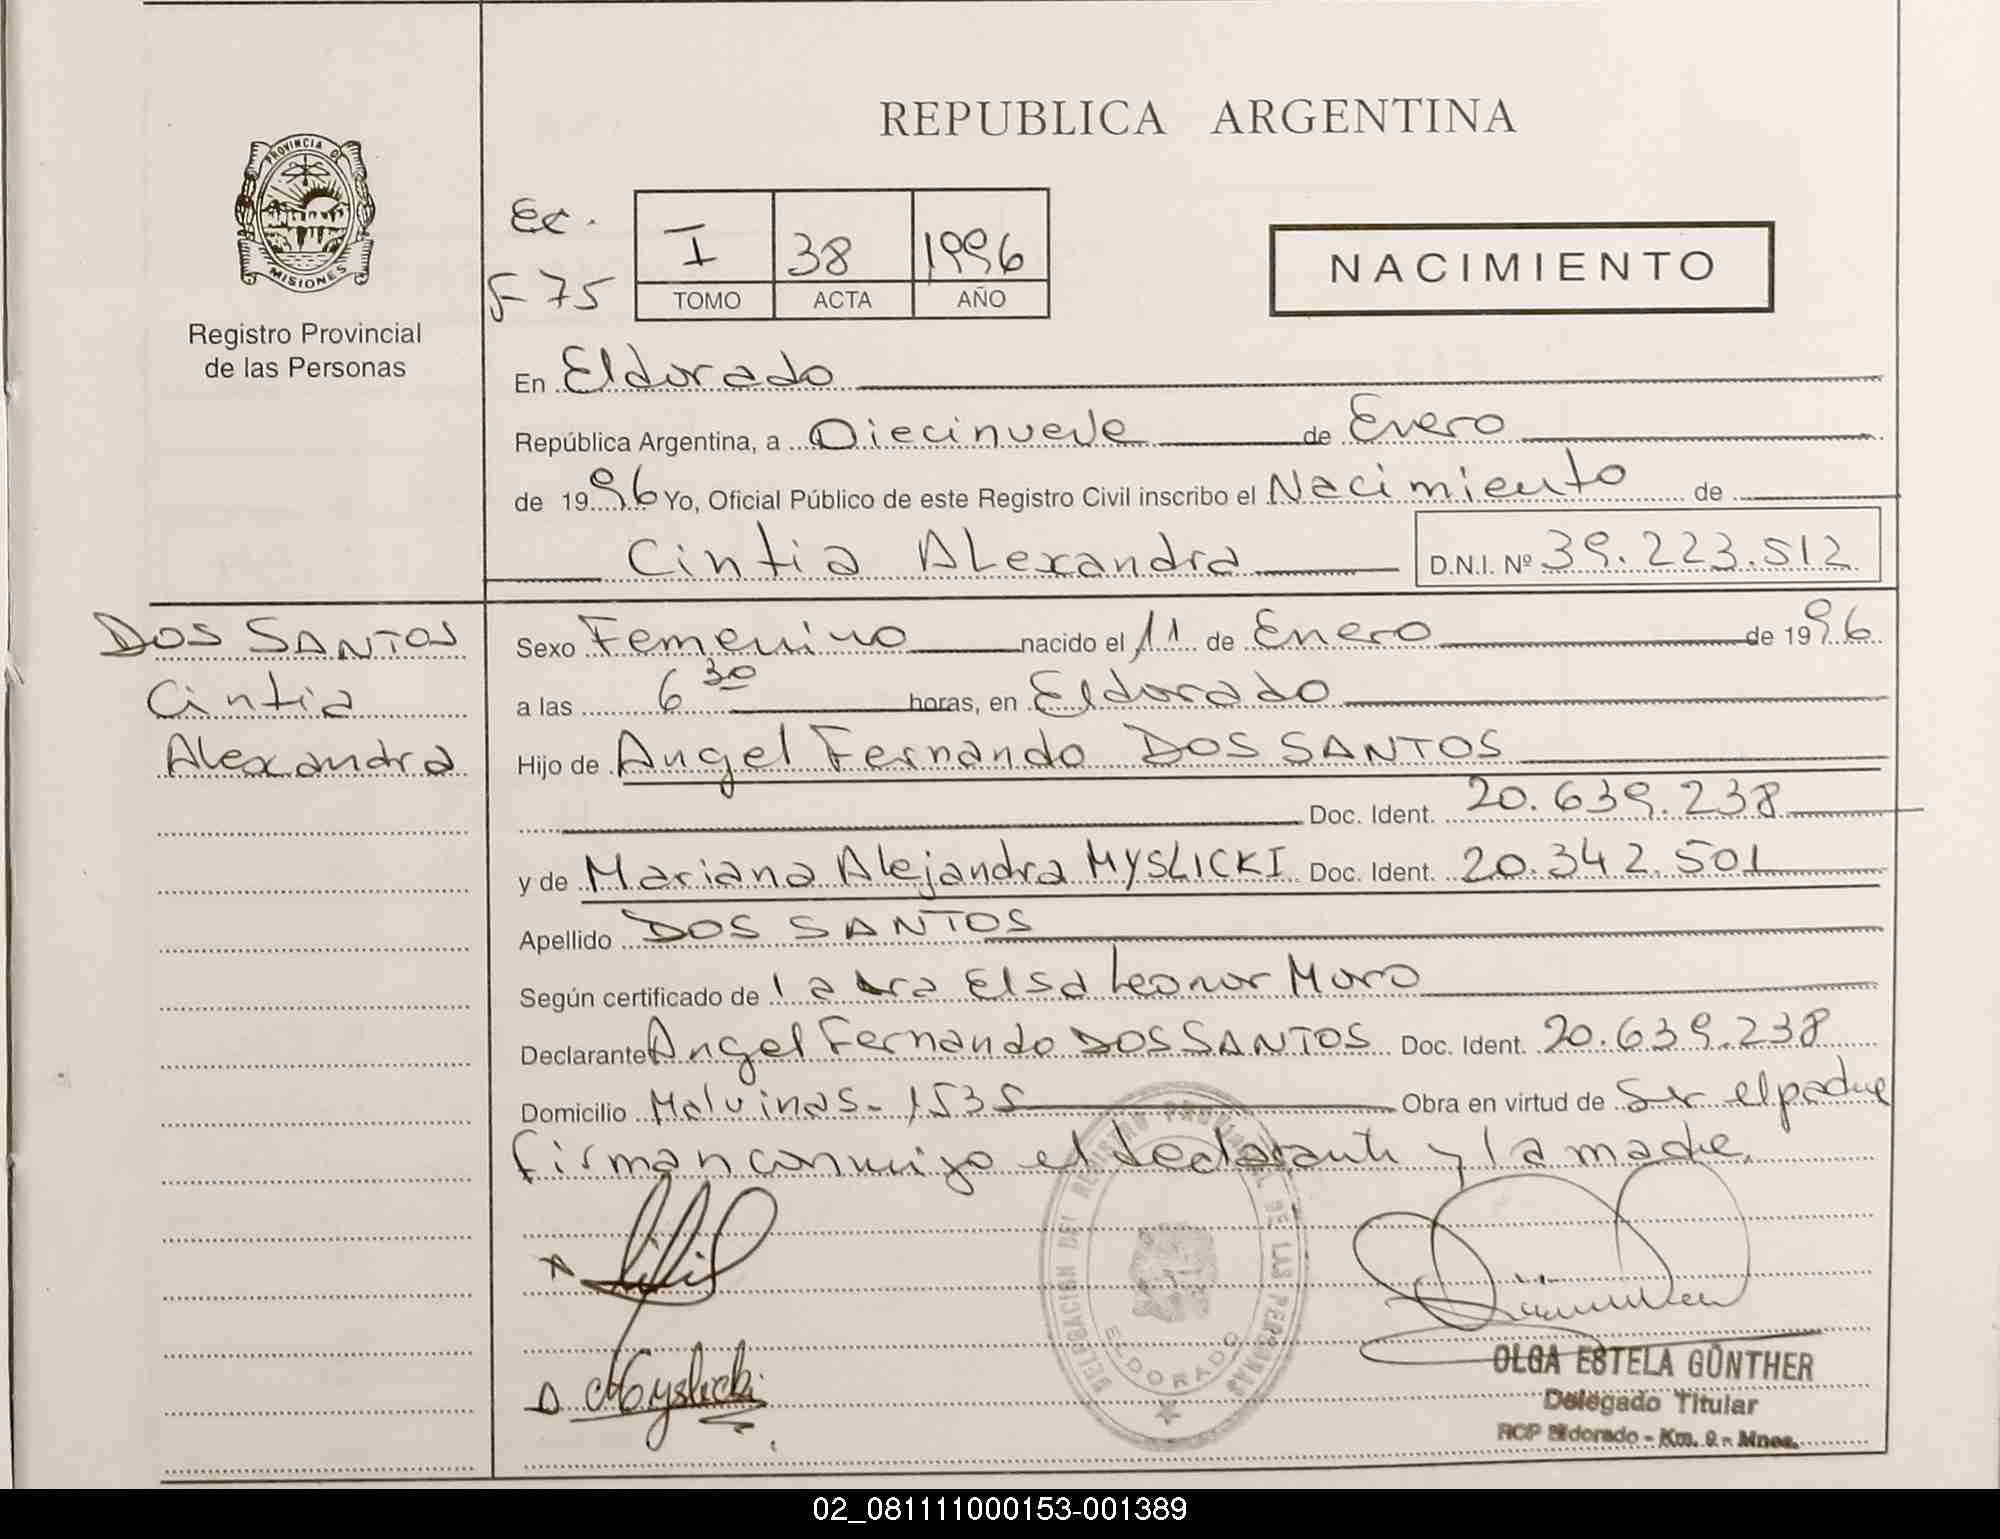 REPUBLICA ARGENTINA
PROVINCIA DE
MISIONES
Registro Provincial
de las Personas
Ec.
F-75
I 38 1996
TOMO ACTA AÑO
NACIMIENTO
En Eldorado
República Argentina, a Diecinueve de Enero
de 1996 Yo, Oficial Público de este Registro Civil inscribo el Nacimiento de
Cintia Alexandra D.N.I. Nº 39.223.512
DOS SANTOS
Cintia
Alexandra
Sexo Femenino nacido el 11 de Enero de 1996
a las 6 30 horas, en Eldorado
Hijo de Angel Fernando DOS SANTOS
Doc. Ident. 20.639.238
y de Mariana Alejandra MYSLICKI Doc. Ident. 20.342.501
Apellido DOS SANTOS
Según certificado de la dra Elsa Leonor Moro
Declarante Angel Fernando DOS SANTOS Doc. Ident. 20.639.238
Domicilio Malvinas-1535 Obra en virtud de Ser el padre
firman conmigo el declarante y la madre.
DELEGACION DEL REGISTRO PROVINCIAL DE LAS PERSONAS
ELDORADO
Myslicki
OLGA ESTELA GÜNTHER
Delegado Titular
RCP Eldorado - Km. 9 - Mnes.
02_081111000153-001389